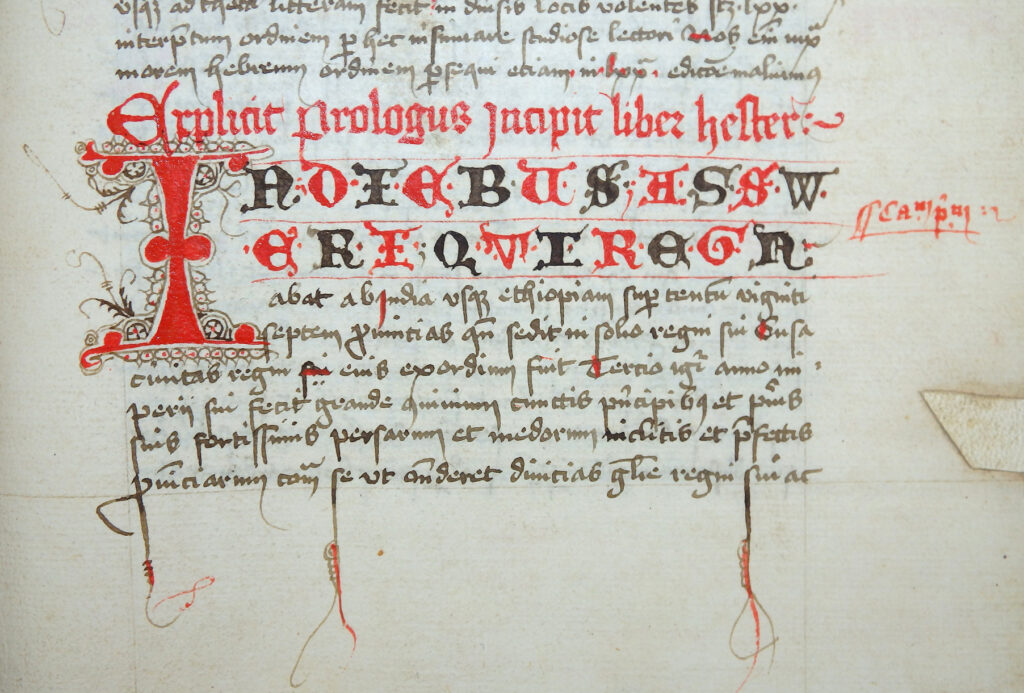 usq ad theta litteram fecit in diusis locis volentes stz lxx.
interptum ordinem p hec insinuare studiose lectori Nos em iuxta
morem hebreum ordinem psequi etiam in lxx editoe maluimus
Explicit Prologus Incipit liber hester
IN DIEBUS ASSW
ERI QVI REGN
SSCam pm
abat ab India usq ethiopiam sup centu viginti
septem prouincias qn sedit in solio regni sui Susa
ciuitas regni eius exordium fuit Tercio igr anno im
perii sui fecit grande conuiuium cunctis pncipibq et puis
suis fortissimis persarum et medorum inclitis et pfectis
puinciarum coram se ut onderet diuicias glie regni sui ac